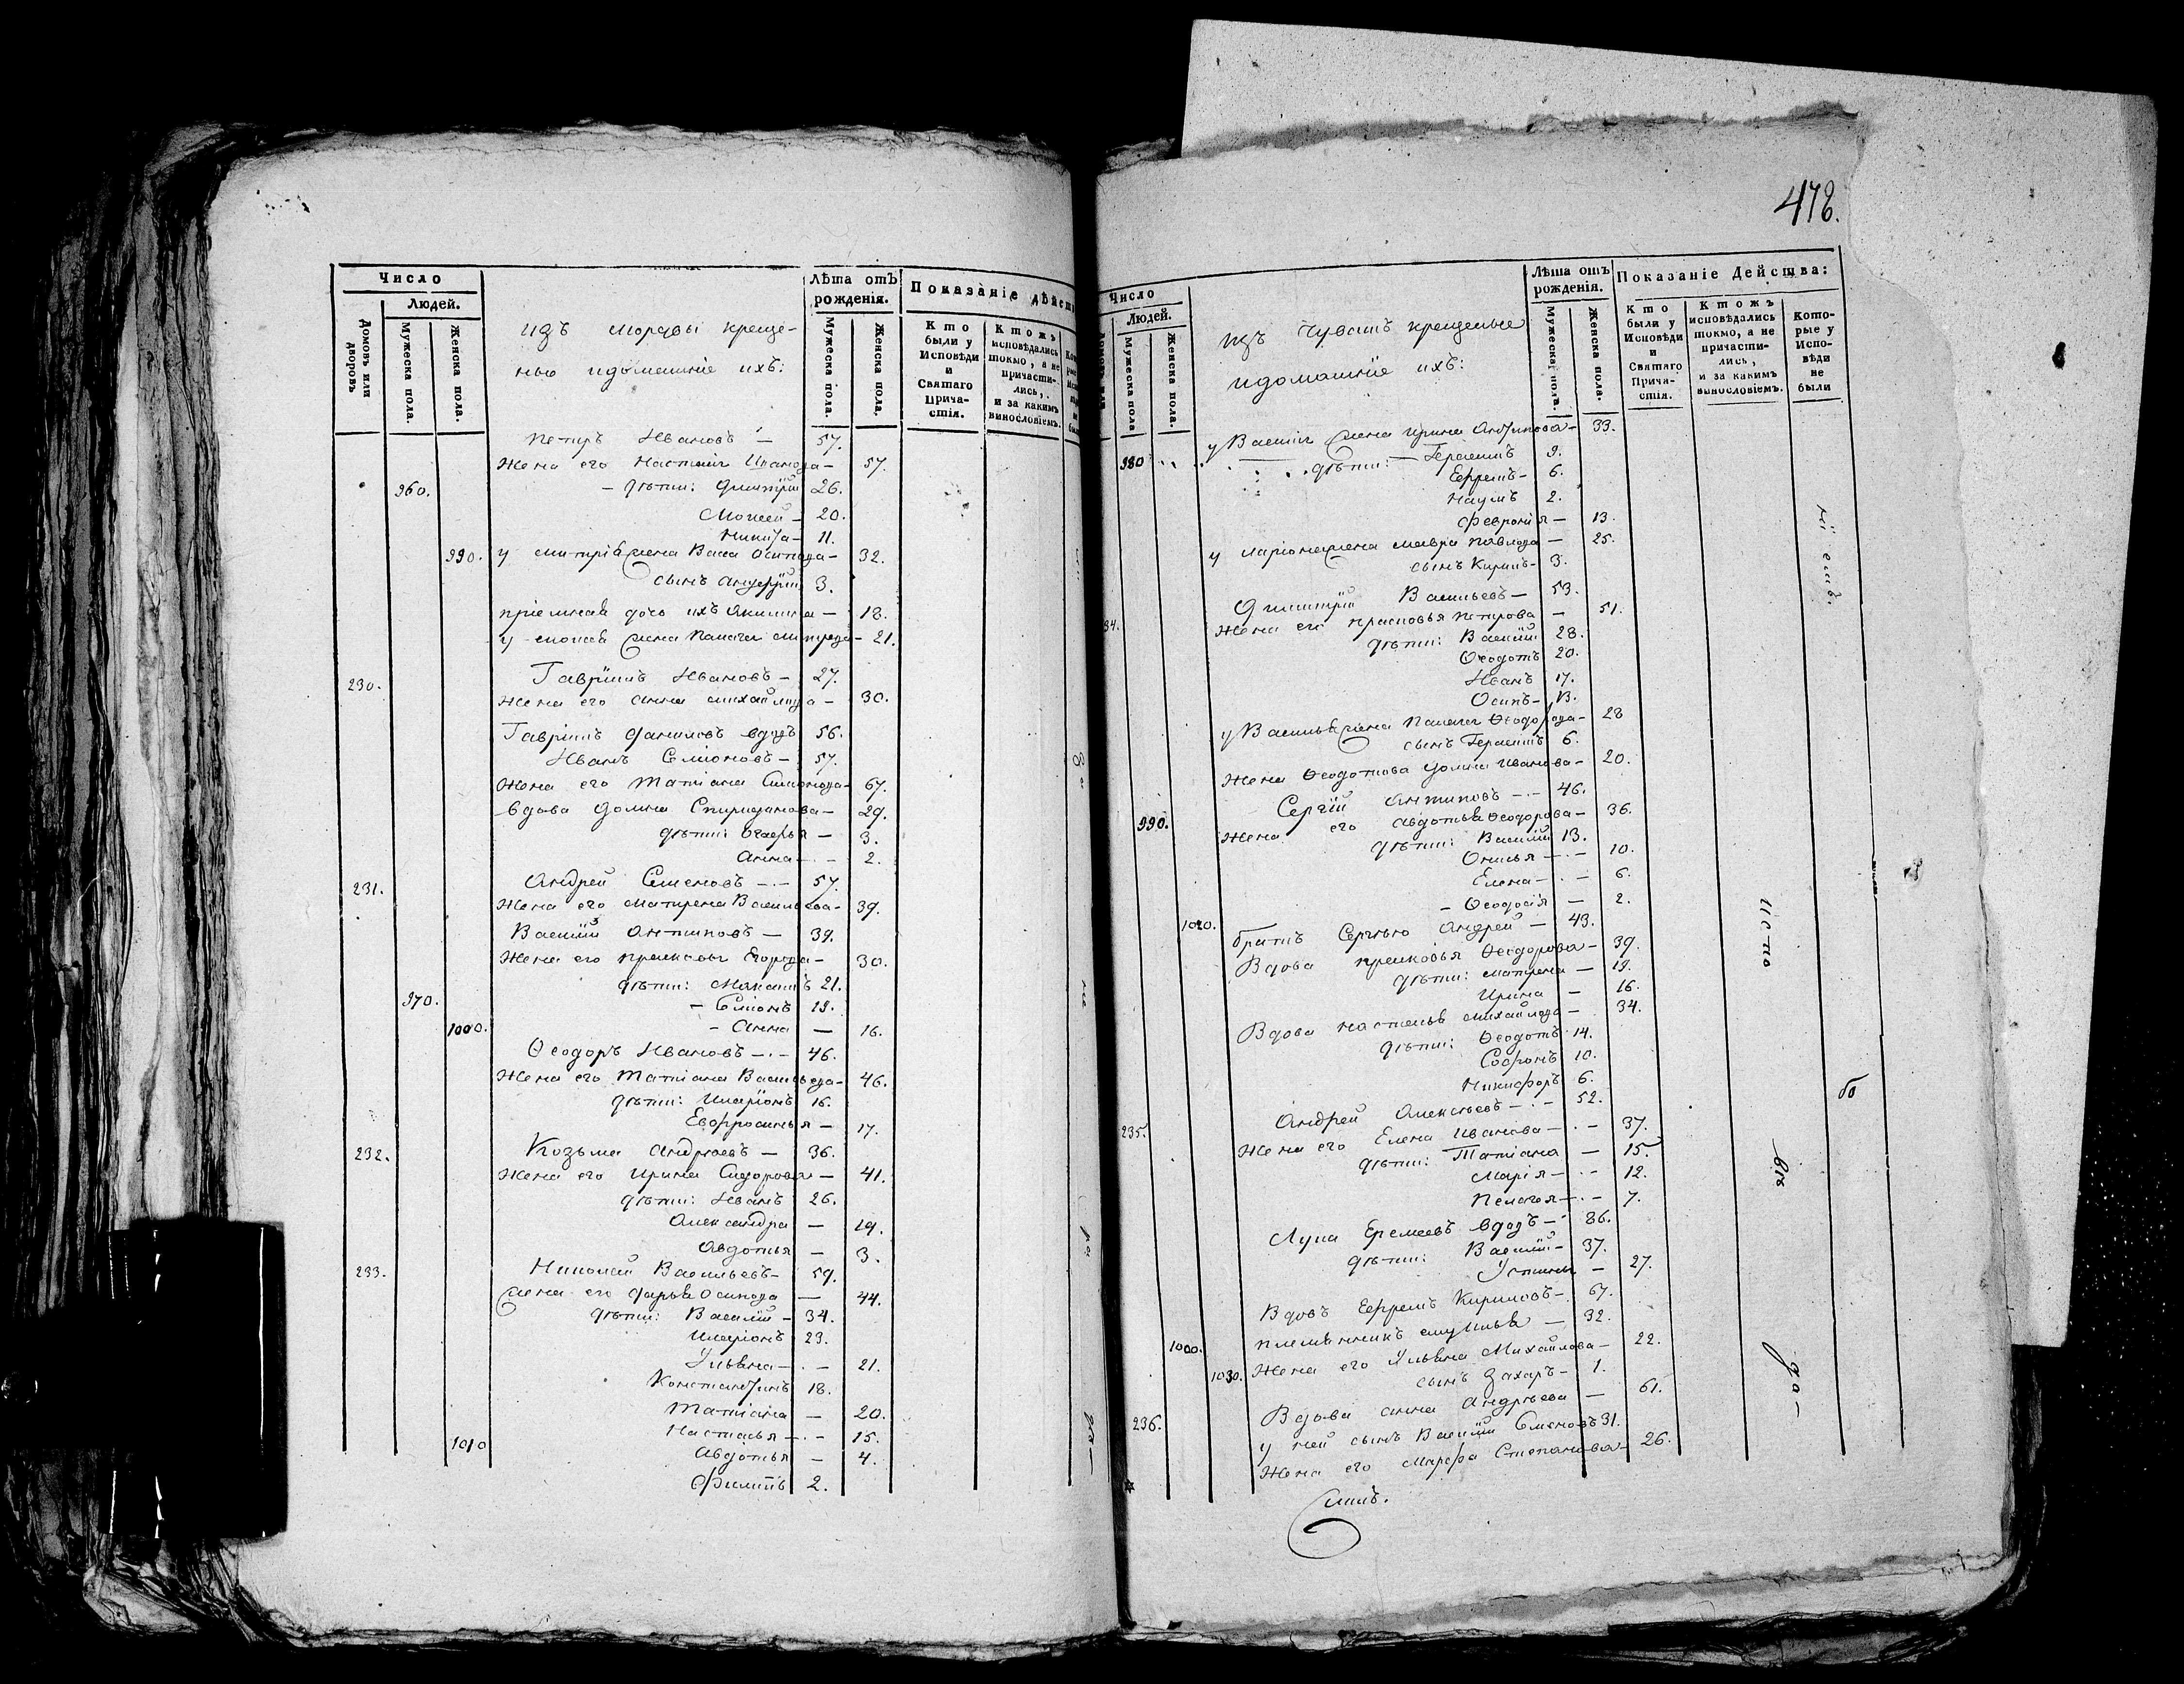 Число
Людей.
Домовъ или дворовъ
Мужеска пола.
Женска пола.
изъ мордвы креще-
ные идомашніе ихъ:
Лѣта отъ рожденія.
Мужеска пола.
Женска пола.
Показаніе дѣйст
Кто были у Исповѣди и Святаго Прича-стія.
Ктожъ исповѣдались токмо, а не причасти-лись, и за какимъ винословіемъ.
Петръ Ивановъ — 57.
Жена его Настасія — 57.
960. — дѣти: Дмитрій 26.
Моисей — 20.
Никита — 11.
990. у митрія жена Васа Осипова — 32.
сынъ 3.
пріемная дочь ихъ Акилина — 18.
у моисея жена Палагея — 21.
230. Гаврилъ Ивановъ — 27.
Жена его Анна михайлова — 30.
Гаврилъ Даниловъ вдовъ 56.
Иванъ Семіоновъ — 57.
Жена его Татіана Симонова — 67.
вдова Домна Спиридонова — 29.
дѣти: — 3.
Анна — 2.
231. Андрей Семеновъ — 57.
Жена его Матрена Васильева — 39.
Василій Антиповъ — 39.
Жена его Прасковья — 30.
дѣти: 21.
970. — Семіонъ 19.
1000. — Анна — 16.
Ѳеодоръ Ивановъ — 46.
Жена его Татіана Васильева — 46.
дѣти: Иларіонъ 16.
Евфросинья — 17.
232. Козьма Андреевъ — 36.
Жена его Ирина Сидорова — 41.
дѣти: Иванъ 26.
Александра — 19.
Авдотья — 3.
233. Николай Васильевъ — 59.
Жена его Дарья Осипова — 44.
дѣти: Василій — 34.
Иларіонъ 23.
Ульяна — 21.
Константинъ 18.
Татіана — 20.
Настасья — 15.
1010 Авдотья — 4.
Филипъ 2.
478.
Число
Людей.
Мужеска пола
Женска пола.
изъ Чувашъ крещеные
идомашніе ихъ:
Лѣта отъ рожденія.
Мужеска пола.
Женска пола.
Показаніе Действа:
Кто были у Исповѣди и Святаго Прича-стія.
Ктожъ исповѣдались токмо, а не причасти-лись, и за какимъ винословіемъ.
Кото-рые у Испо-вѣди не были
у Василія жена Ирина Антипова — 33.
980 дѣти: — Герасимъ 9.
Ефремъ — 6.
Наумъ 2.
Февронія — 13.
у Ларіона жена Мавра Павлова — 25.
сынъ Кирилъ — 3.
34. Дмитрій Васильевъ — 53.
Жена его Прасковья Петрова — 51.
дѣти: Василій 28.
Ѳеодотъ 20.
Иванъ 17.
Осипъ — 13.
у Василья жена Палагея Ѳеодорова — 28
сынъ Герасимъ 6.
Жена Ѳеодотова Домна Иванова — 20.
990. Сергій Антиповъ — 46.
Жена его Авдотья Ѳеодорова — 36.
дѣти: Василій 13.
— 10.
Елена — 6.
— Ѳеодосія — 2.
1020. братъ Сергѣю Андрей — 43.
Вдова Прасковья Ѳеодорова — 39.
дѣти: Матрена — 19.
Ирина — 16.
Вдова Настасья Михайлова — 34.
дѣти: Ѳеодотъ 14.
Софронъ 10.
Никифоръ 6.
235. Андрей Алексѣевъ — 52.
Жена его Елена Иванова — 37.
дѣти: Татіана — 15.
Марія — 12.
Пелагея — 7.
Лупа Еремеевъ вдовъ — 86.
дѣти: Василій — 37.
Устинья — 27.
Вдовъ Ефремъ Кириловъ — 67.
1000. племянникъ ему Илья — 32.
1030. Жена его Ульяна Михайлова — 22.
сынъ Захаръ — 1.
236. Вдова Анна Андрѣева — 61.
у ней сынъ Василій Семеновъ 31.
Жена его Марфа Степанова — 26.